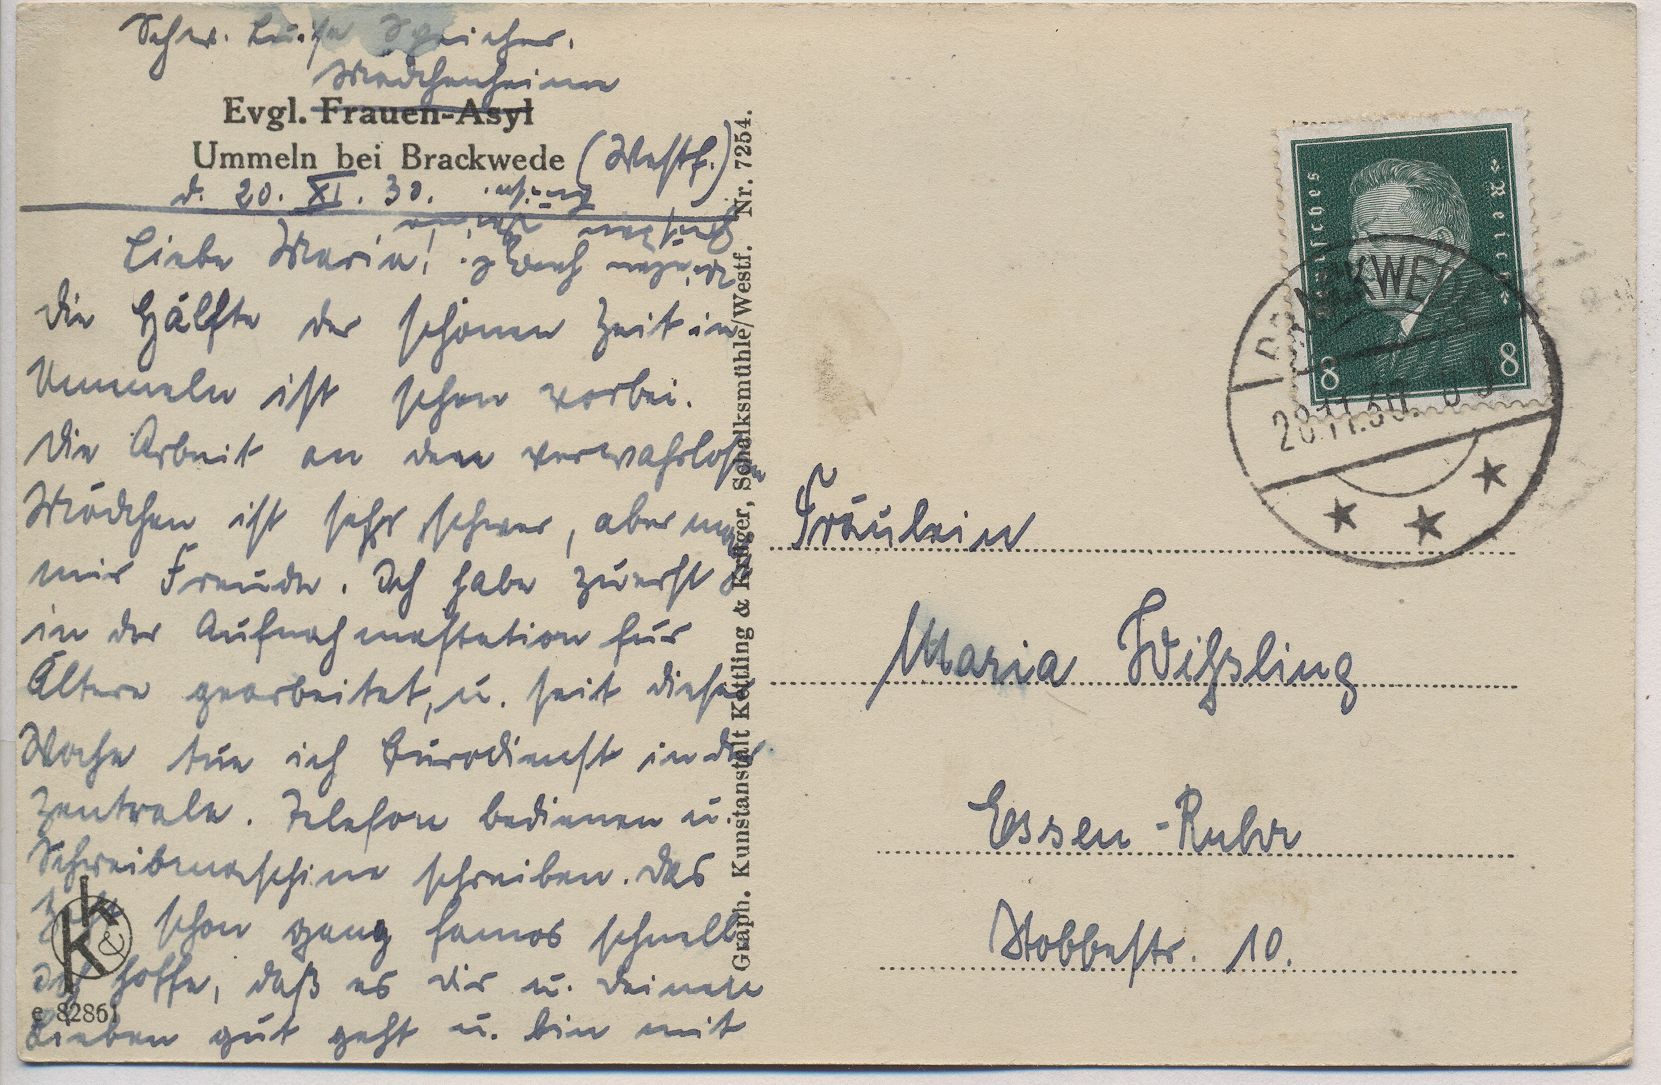 Schw. Luise Speicher.
Mädchenheim
Evgl. Frauen-Asyl
Ummeln bei Brackwede (Westf.)
d. 20. XI. 30.
Liebe Maria!
Die Hälfte der schönen Zeit in
Ummeln ist schon vorbei.
Die Arbeit an den verwahrlosten
Mädchen ist sehr schwer, aber macht
mir Freude. Ich habe zuerst
in der Aufnahmestation für
Ältere gearbeitet, u. seit dieser
Woche tue ich Bürodienst in der
Zentrale. Telefon bedienen u.
Schreibmaschine schreiben. Das
geht schon ganz famos schnell
Ich hoffe, daß es Dir u. Deinen
Lieben gut geht u. bin mit
K & K
e 82861
Graph. Kunstanstalt Kettling & Krüger, Schalksmühle/Westf. Nr. 7254.
Deutsches Reich
8 8
BRACKWEDE
28.11.30. 8-9
Fräulein
Maria Wißling
Essen-Ruhr
Stobbestr. 10.